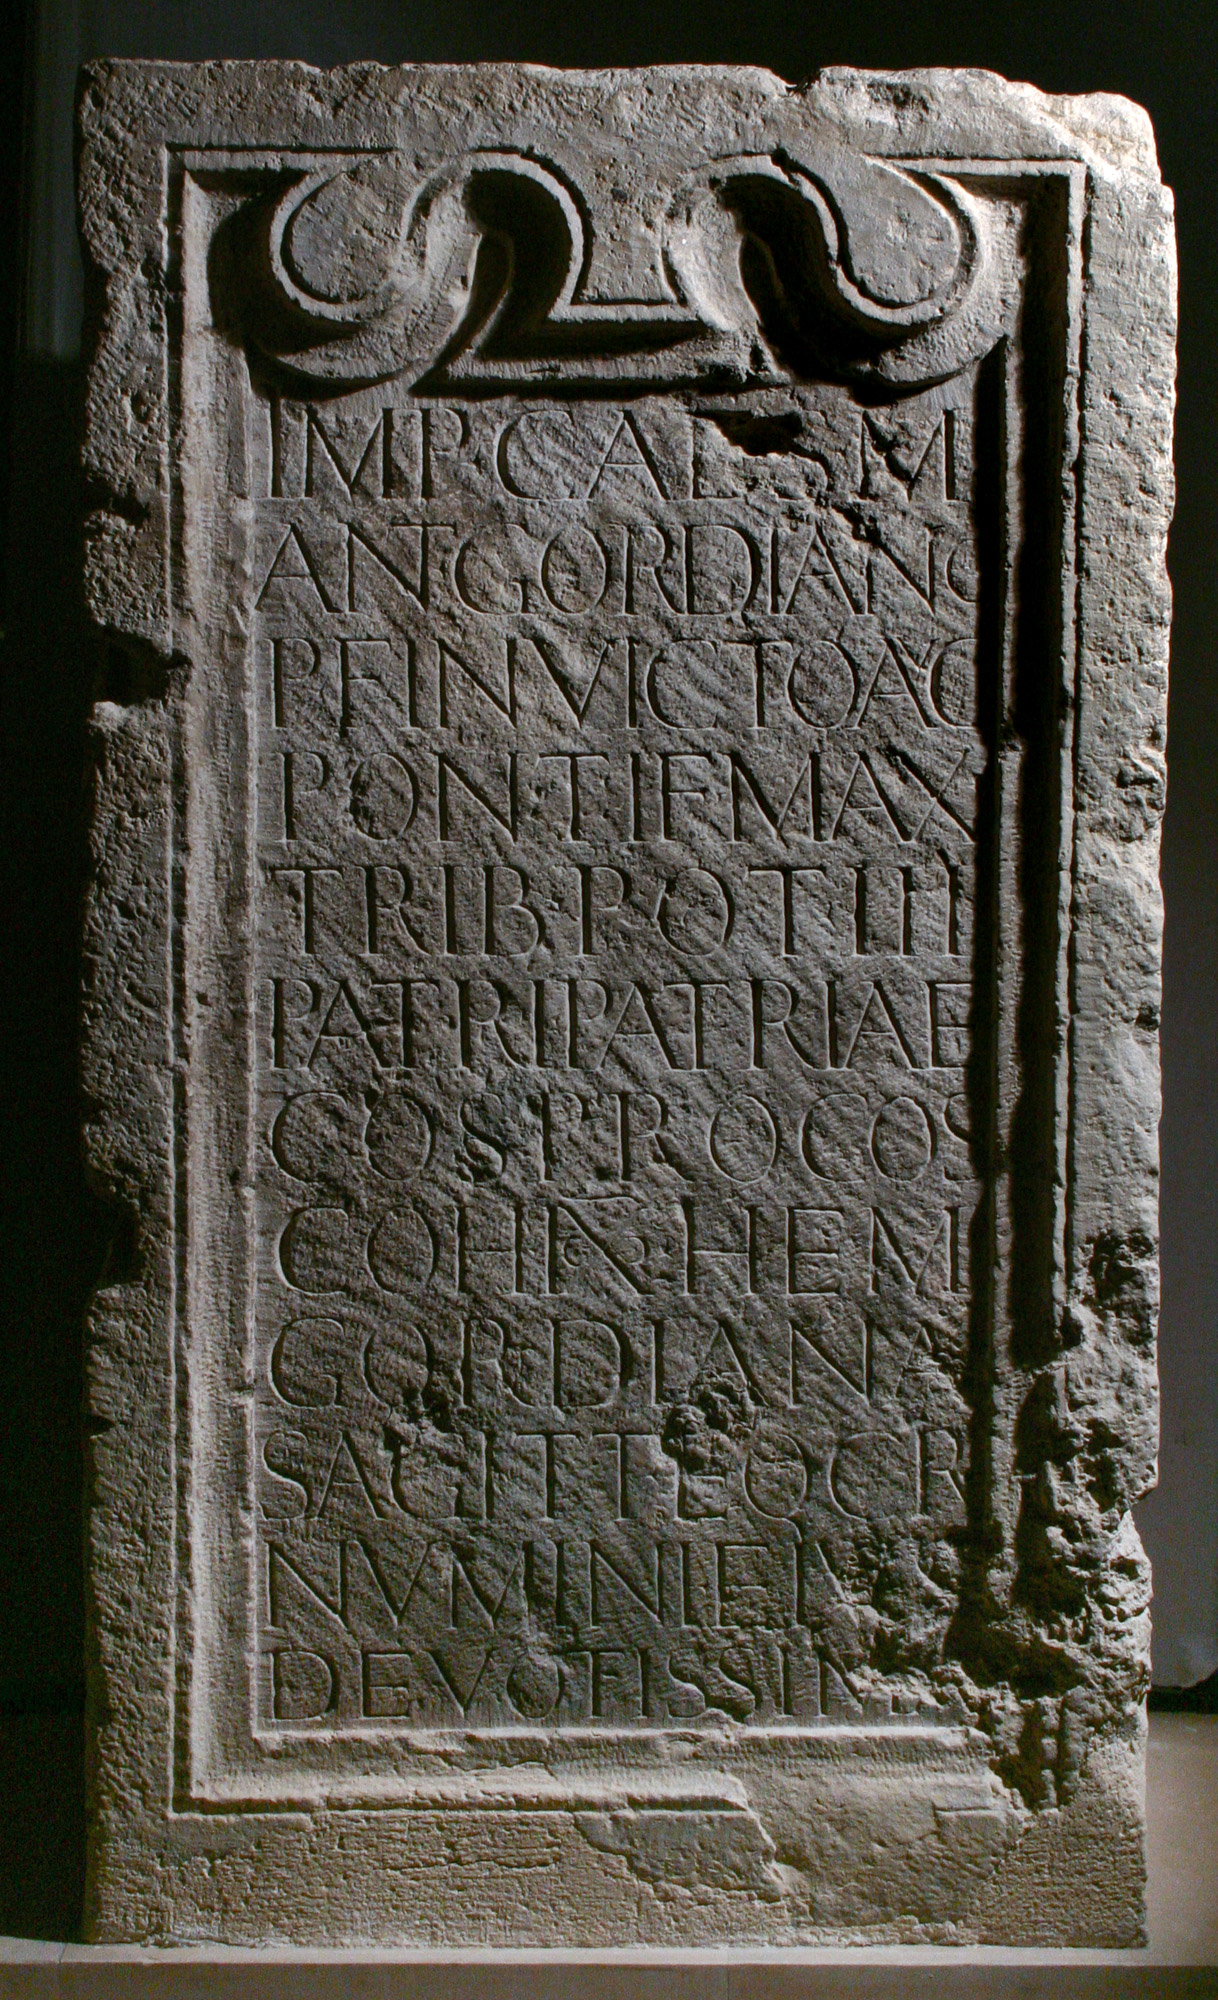 IMP CAES M
ANT GORDIANO
P F INVICTO AVG
PONTIF MAX
TRIB POT IIII
PATRI PATRIAE
COS II PROCOS
COH MIL HEM
GORDIANA
SAGITT EQ C R
NVMINI EIVS
DEVOTISSIMA